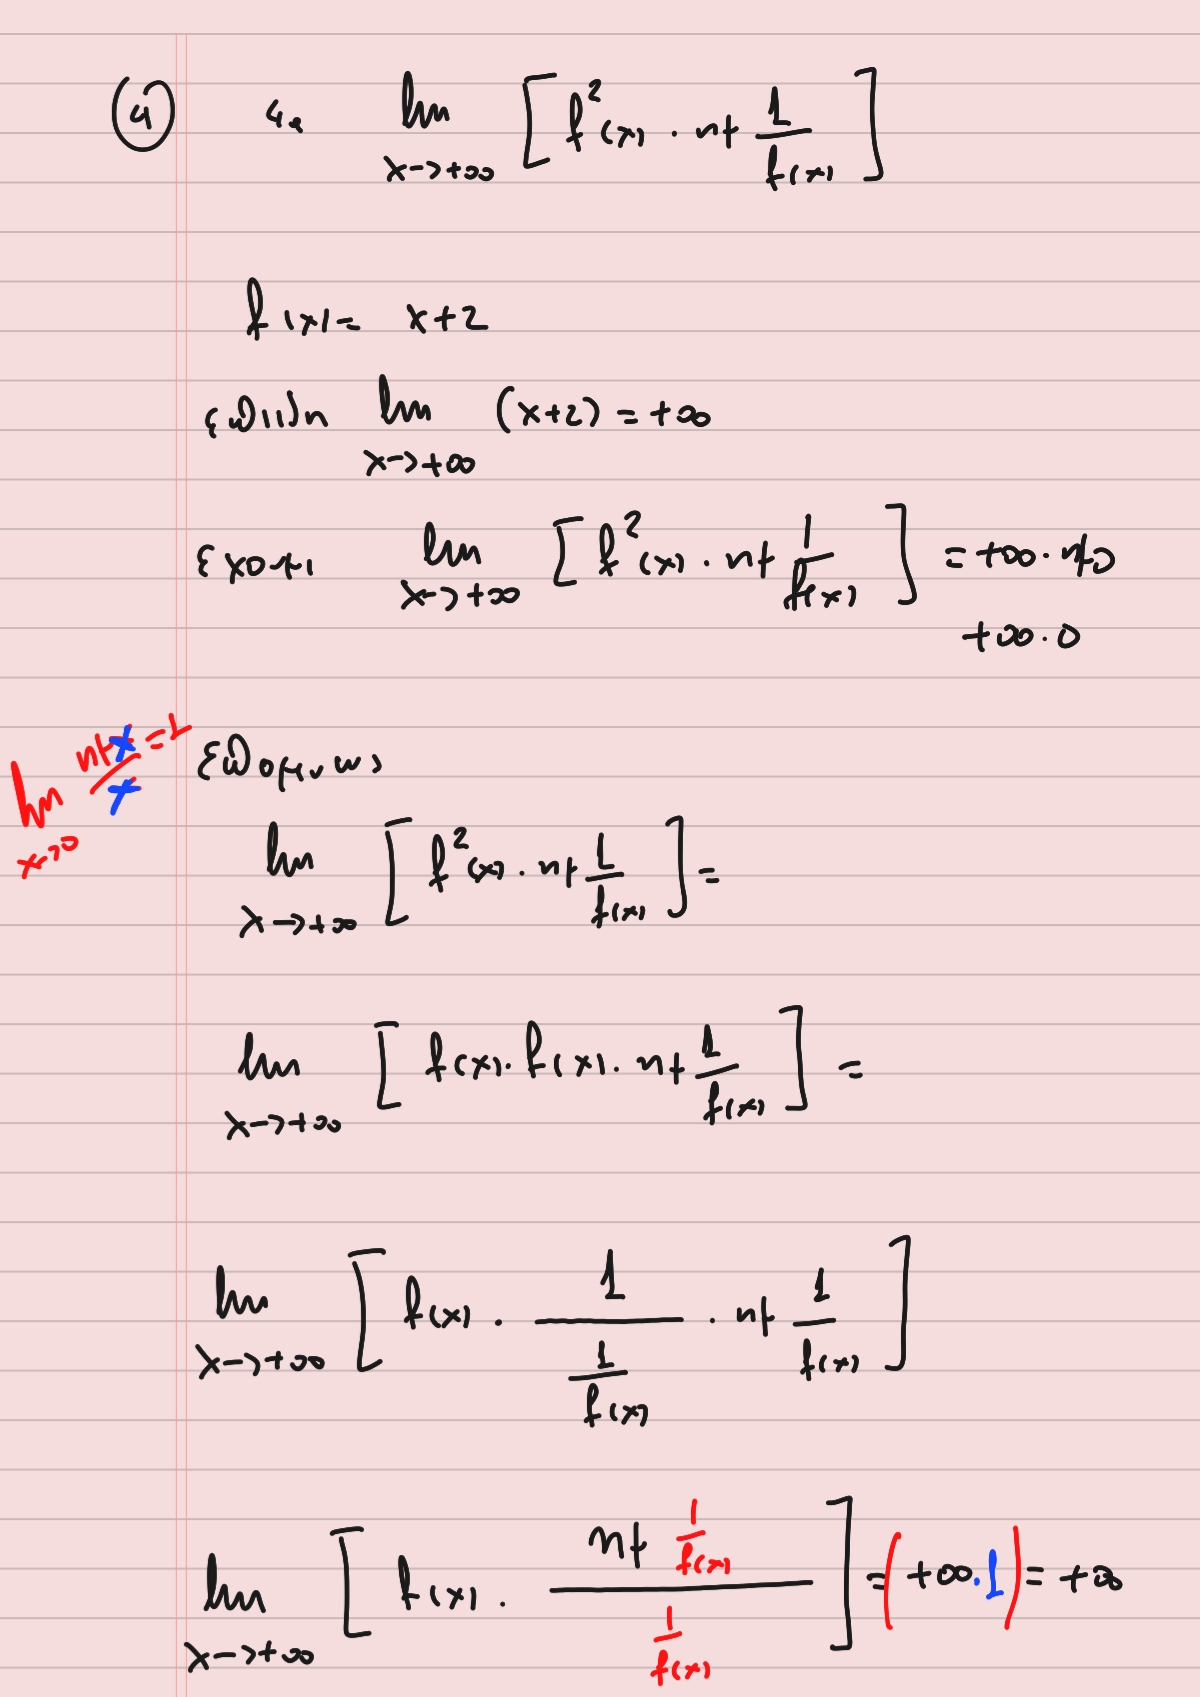 ④ 4. lim x→+∞ [ f²(x) · ημ 1/f(x) ]
f(x) = x+2
επειδή lim x→+∞ (x+2) = +∞
έχουμε lim x→+∞ [ f²(x) · ημ 1/f(x) ] = +∞ · ημ0
+∞ · 0
lim x→0 ημx/x = 1
Επομένως
lim x→+∞ [ f²(x) · ημ 1/f(x) ] =
lim x→+∞ [ f(x) · f(x) · ημ 1/f(x) ] =
lim x→+∞ [ f(x) · 1/(1/f(x)) · ημ 1/f(x) ]
lim x→+∞ [ f(x) · (ημ 1/f(x))/(1/f(x)) ] = (+∞ · 1) = +∞